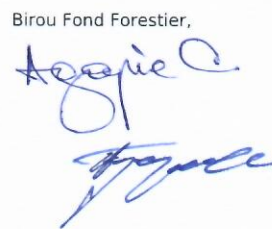 Birou Fond Forestier,
Agapie C.